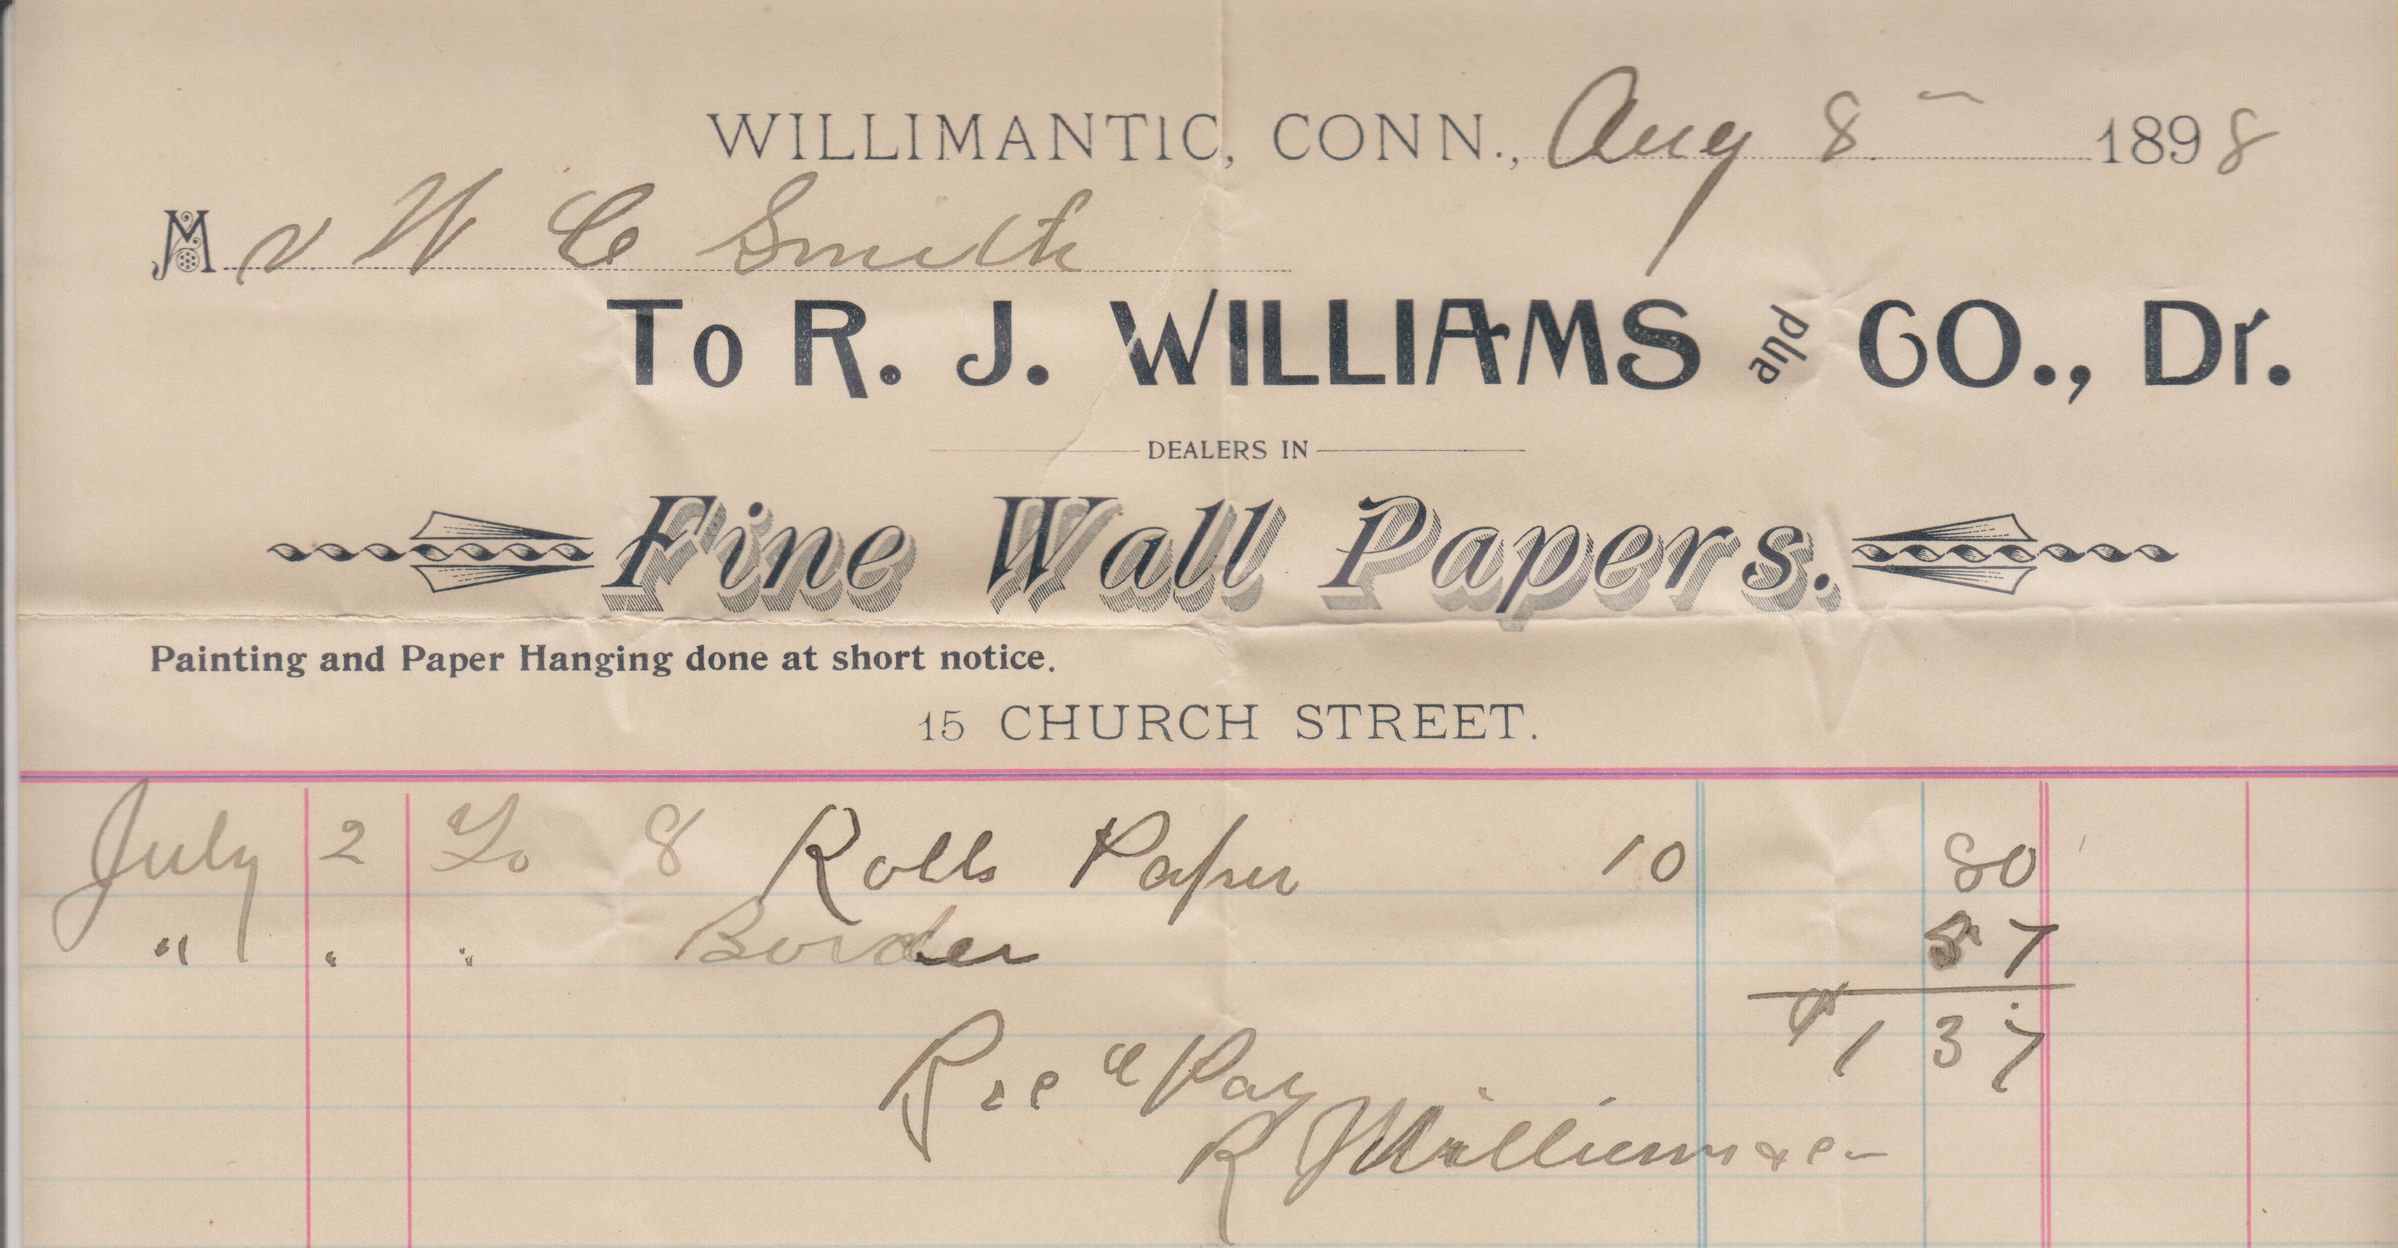 WILLIMANTIC, CONN., Aug 8 1898
Mr W C Smith
To R. J. WILLIAMS and CO., Dr.
DEALERS IN
Fine Wall Papers.
Painting and Paper Hanging done at short notice.
15 CHURCH STREET.
July 2 To 8 Rolls Paper 10 80
" " " Border 57
1 37
Rec d Pay
R J Williams & Co